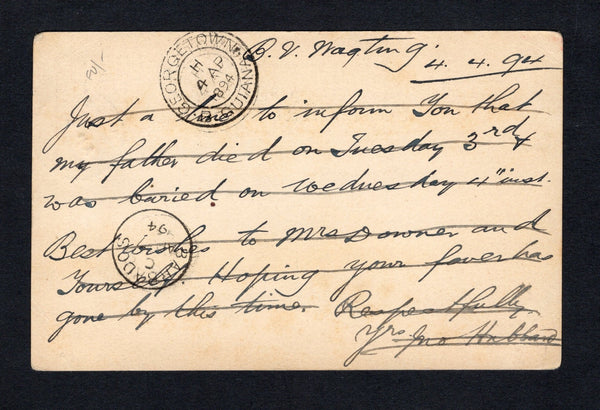 B. V. 4. 4. 94
GEORGETOWN B. GUIANA
H
4 AP
94
Just a line to inform You that
my father died on Tuesday 3rd &
was buried on Wednesday 4th inst.
Best wishes to Mrs Downer and
Yours, Hoping your fever has
gone by this time. Respectfully
Yrs. Jno Hubbard
BARBADOS
C
AP
94